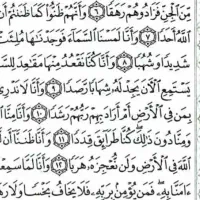 مِّنَ ٱلْجِنِّ فَزَادُوهُمْ رَهَقًا ٦ وَأَنَّهُمْ ظَنُّوا۟ كَمَا ظَنَنتُمْ
ٱللَّهُ أَحَدًا ٧ وَأَنَّا لَمَسْنَا ٱلسَّمَآءَ فَوَجَدْنَٰهَا مُلِئَتْ
شَدِيدًا وَشُهُبًا ٨ وَأَنَّا كُنَّا نَقْعُدُ مِنْهَا مَقَٰعِدَ
يَسْتَمِعِ ٱلْـَٔانَ يَجِدْ لَهُۥ شِهَابًا رَّصَدًا ٩ وَأَنَّا لَا نَدْرِىٓ
بِمَن فِى ٱلْأَرْضِ أَمْ أَرَادَ بِهِمْ رَبُّهُمْ رَشَدًا ١٠ وَأَنَّا مِنَّا
وَمِنَّا دُونَ ذَٰلِكَ ۖ كُنَّا طَرَآئِقَ قِدَدًا ١١ وَأَنَّا ظَنَنَّآ أَن
ٱللَّهَ فِى ٱلْأَرْضِ وَلَن نُّعْجِزَهُۥ هَرَبًا ١٢ وَأَنَّا لَمَّا
ءَامَنَّا بِهِۦ ۖ فَمَن يُؤْمِنۢ بِرَبِّهِۦ فَلَا يَخَافُ بَخْسًا وَلَا